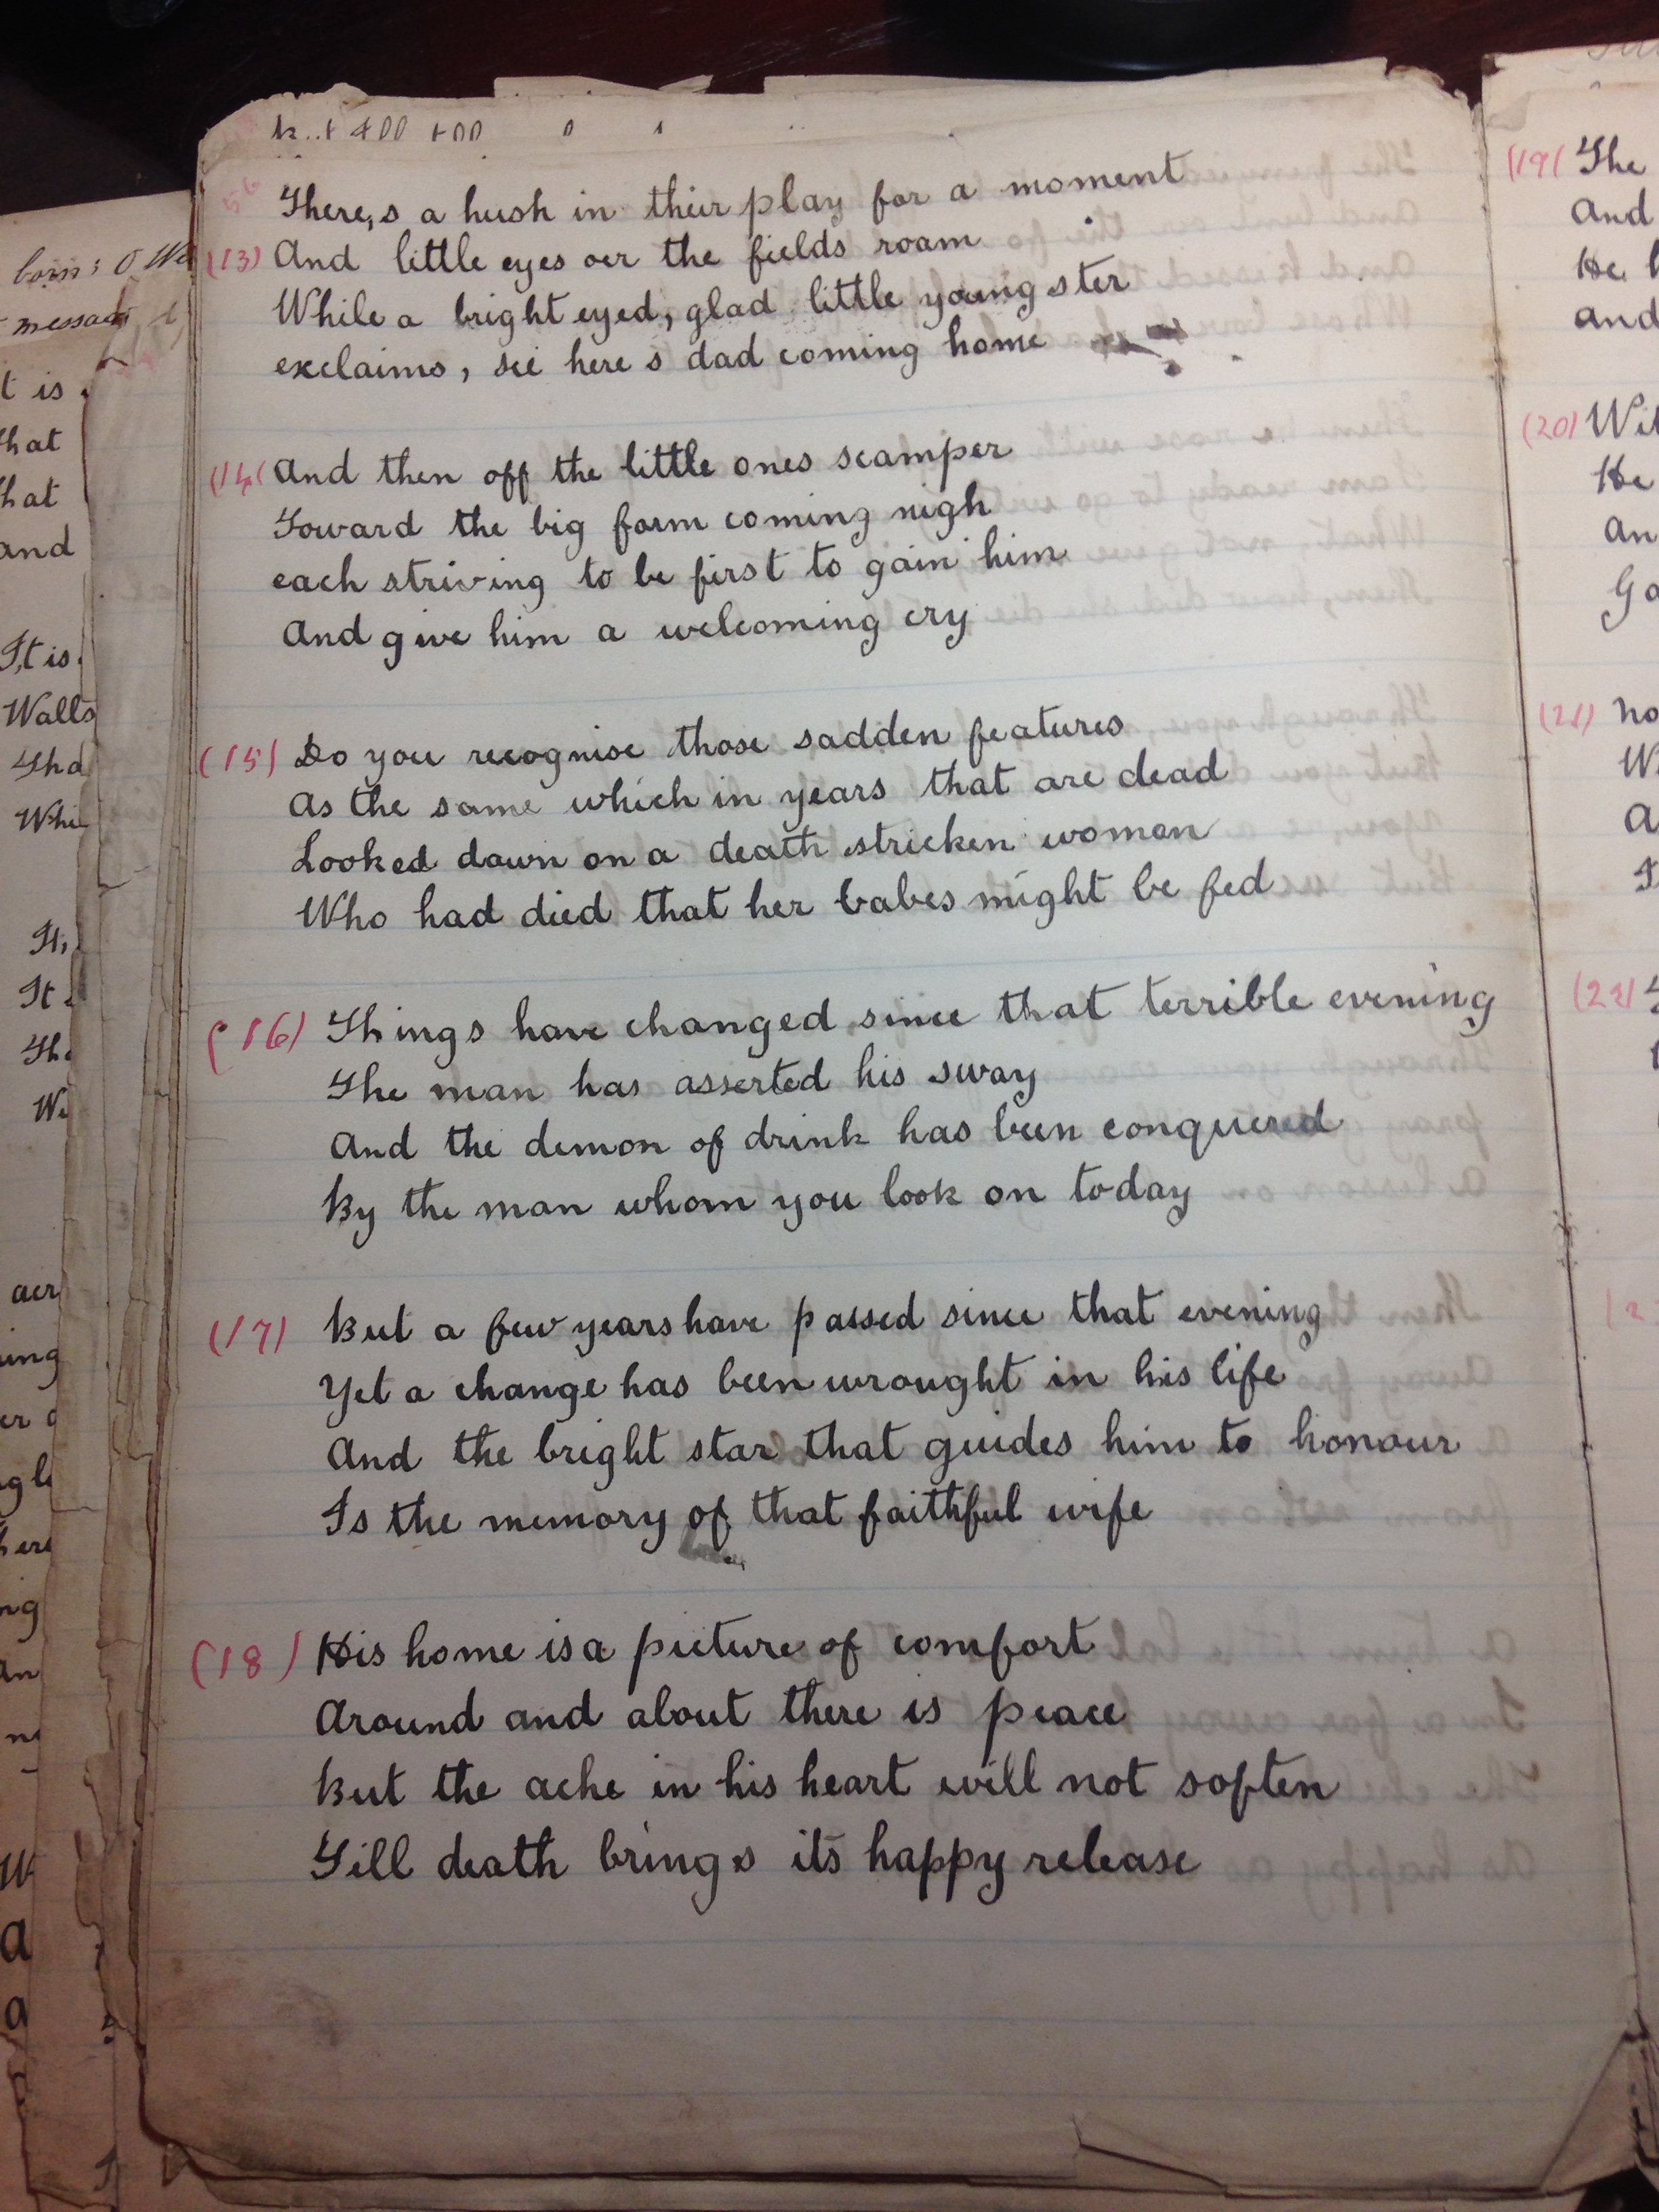 There,s a hush in their play for a moment
(13) And little eyes oer the fields roam
While a bright eyed, glad little youngster
exclaims, see here s dad coming home
(14( And then off the little ones scamper
Toward the big form coming nigh
each striving to be first to gain him
And give him a welcoming cry
(15) Do you recognise those sadden features
As the same which in years that are dead
Looked down on a death stricken woman
Who had died that her babes might be fed
(16) Things have changed since that terrible evening
The man has asserted his sway
And the demon of drink has been conquered
By the man whom you look on today
(17) But a few years have passed since that evening
Yet a change has been wrought in his life
And the bright star that guides him to honour
Is the memory of that faithful wife
(18) His home is a picture of comfort
Around and about there is peace
But the ache in his heart will not soften
Till death brings its happy release
born;
message
t is
and
It is
Walls
(19( The
And
He
and
(20) Wit
He
(21)
(22)